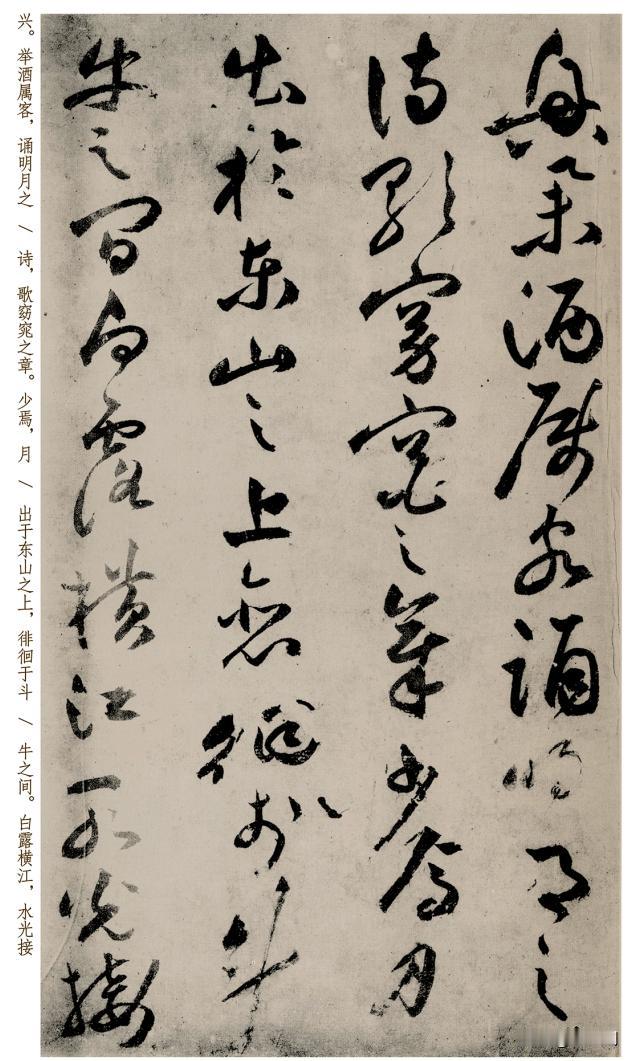 興舉酒屬客誦明月之
詩歌窈窕之章少焉月
出於東山之上徘徊於斗
牛之間白露橫江水光接
兴。举酒属客，诵明月之 / 诗，歌窈窕之章。少焉，月 / 出于东山之上，徘徊于斗 / 牛之间。白露横江，水光接